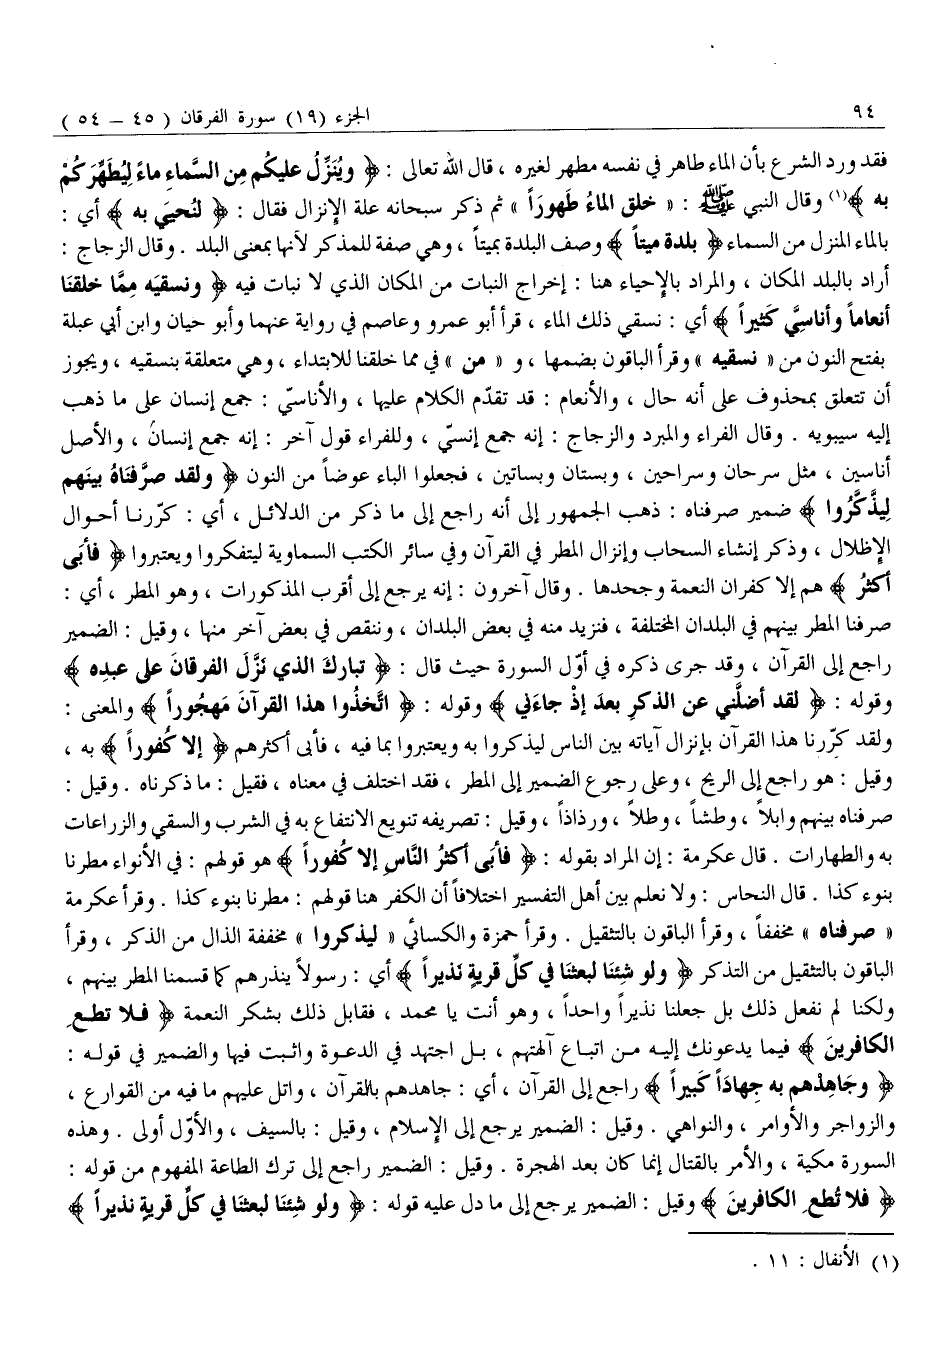 ٩٤
الجزء (١٩) سورة الفرقان ( ٤٥ – ٥٤ )
فقد ورد الشرع بأن الماء طاهر في نفسه مطهر لغيره ، قال الله تعالى : ﴿ ويُنَزِّلُ عليكُم مِن السَّماءِ ماءً لِيُطَهِّرَكُمْ
به ﴾(١) وقال النبي ﷺ : « خلق الماءُ طَهورَاً » ثم ذكر سبحانه علة الإنزال فقال : ﴿ لنُحيَي به ﴾ أي :
بالماء المنزل من السماء ﴿ بلدة ميتاً ﴾ وصف البلدة بميتاً ، وهي صفة للمذكر لأنها بمعنى البلد . وقال الزجاج :
أراد بالبلد المكان ، والمراد بالإحياء هنا : إخراج النبات من المكان الذي لا نبات فيه ﴿ ونسقيَه مِمَّا خلقنَا
أنعاماً وأناسِيَّ كَثيراً ﴾ أي : نسقي ذلك الماء ، قرأ أبو عمرو وعاصم في رواية عنهما وأبو حيان وابن أبي عبلة
بفتح النون من « نسقيه » وقرأ الباقون بضمها ، و « من » في مما خلقنا للابتداء ، وهي متعلقة بنسقيه ، ويجوز
أن تتعلق بمحذوف على أنه حال ، والأنعام : قد تقدّم الكلام عليها ، والأناسيّ : جمع إنسان على ما ذهب
إليه سيبويه . وقال الفراء والمبرد والزجاج : إنه جمع إنسيّ ، وللفراء قول آخر : إنه جمع إنسان ، والأصل
أناسين ، مثل سرحان وسراحين ، وبستان وبساتين ، فجعلوا الباء عوضاً من النون ﴿ ولقد صرَّفناهُ بينَهم
لِيذَّكَّرُوا ﴾ ضمير صرفناه : ذهب الجمهور إلى أنه راجع إلى ما ذكر من الدلائل ، أي : كررنا أحوال
الإظلال ، وذكر إنشاء السحاب وإنزال المطر في القرآن وفي سائر الكتب السماوية ليتفكروا ويعتبروا ﴿ فأبى
أكثرُ ﴾ هم إلا كفران النعمة وجحدها . وقال آخرون : إنه يرجع إلى أقرب المذكورات ، وهو المطر ، أي :
صرفنا المطر بينهم في البلدان المختلفة ، فنزيد منه في بعض البلدان ، وننقص في بعض آخر منها ، وقيل : الضمير
راجع إلى القرآن ، وقد جرى ذكره في أوّل السورة حيث قال : ﴿ تباركَ الذي نزَّلَ الفرقانَ على عبدِه ﴾
وقوله : ﴿ لقد أضلَّني عن الذكرِ بعدَ إذْ جاءَني ﴾ وقوله : ﴿ اتَّخذُوا هذا القرآنَ مَهجُوراً ﴾ والمعنى :
ولقد كرّرنا هذا القرآن بإنزال آياته بين الناس ليذكروا به ويعتبروا بما فيه ، فأبى أكثرهم ﴿ إلا كُفوراً ﴾ به ،
وقيل : هو راجع إلى الريح ، وعلى رجوع الضمير إلى المطر ، فقد اختلف في معناه ، فقيل : ما ذكرناه . وقيل :
صرفناه بينهم وابلاً ، وطشاً ، وطلاً ، ورذاذاً ، وقيل : تصريفه تنويع الانتفاع به في الشرب والسقي والزراعات
به والطهارات . قال عكرمة : إن المراد بقوله : ﴿ فأَبى أكثرُ النَّاسِ إلا كُفوراً ﴾ هو قولهم : في الأنواء مطرنا
بنوء كذا . قال النحاس : ولا نعلم بين أهل التفسير اختلافاً أن الكفر هنا قولهم : مطرنا بنوء كذا . وقرأ عكرمة
« صرفناه » مخففاً ، وقرأ الباقون بالتثقيل . وقرأ حمزة والكسائي « ليذكروا » مخففة الذال من الذكر ، وقرأ
الباقون بالتثقيل من التذكر ﴿ ولو شئنَا لبعثنَا في كلِّ قريةٍ نذيراً ﴾ أي : رسولاً ينذرهم كما قسمنا المطر بينهم ،
ولكنا لم نفعل ذلك بل جعلنا نذيراً واحداً ، وهو أنت يا محمد ، فقابل ذلك بشكر النعمة ﴿ فلا تطعِ
الكافرينَ ﴾ فيما يدعونك إليه من اتباع آلهتهم ، بل اجتهد في الدعوة واثبت فيها والضمير في قوله :
﴿ وجَاهِدْهم به جِهادَاً كَبيراً ﴾ راجع إلى القرآن ، أي : جاهدهم بالقرآن ، واتل عليهم ما فيه من القوارع ،
والزواجر والأوامر ، والنواهي . وقيل : الضمير يرجع إلى الإسلام ، وقيل : بالسيف ، والأوّل أولى . وهذه
السورة مكية ، والأمر بالقتال إنما كان بعد الهجرة . وقيل : الضمير راجع إلى ترك الطاعة المفهوم من قوله :
﴿ فلا تُطعِ الكافرينَ ﴾ وقيل : الضمير يرجع إلى ما دل عليه قوله : ﴿ ولو شِئنَا لبعثنَا في كلِّ قريةٍ نذيراً ﴾
(١) الأنفال : ١١ .